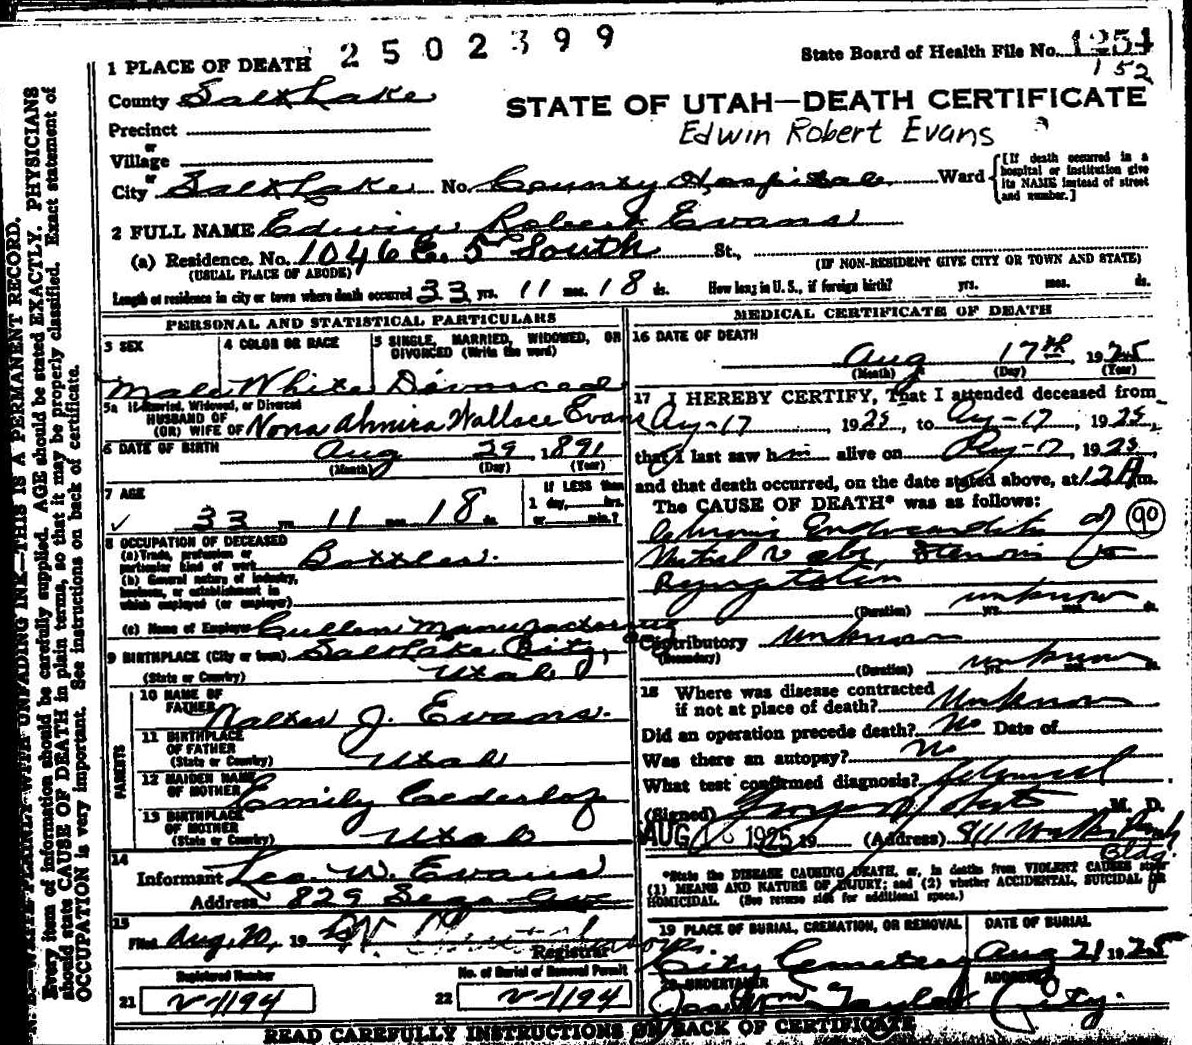 2502399
State Board of Health File No. 1254
152
1 PLACE OF DEATH
County Salt Lake
STATE OF UTAH—DEATH CERTIFICATE
Edwin Robert Evans
Precinct
or
Village
or
City Salt Lake No. County Hospital Ward [If death occurred in a hospital or institution give its NAME instead of street and number.]
2 FULL NAME Edwin Robert Evans
(a) Residence. No. 1046 E. 5th South St.,
(USUAL PLACE OF ABODE) (IF NON-RESIDENT GIVE CITY OR TOWN AND STATE)
Length of residence in city or town where death occurred 33 yrs. 11 mos. 18 ds. How long in U. S., if foreign birth? yrs. mos. ds.
PERSONAL AND STATISTICAL PARTICULARS
3 SEX
4 COLOR OR RACE
5 SINGLE, MARRIED, WIDOWED, OR DIVORCED (Write the word)
Male White Divorced
5a If Married, Widowed, or Divorced
HUSBAND OF
(OR) WIFE OF Nona Almira Wallace Evans
6 DATE OF BIRTH Aug 29, 1891
(Month) (Day) (Year)
7 AGE
33 yrs. 11 mos. 18 ds.
If LESS than
1 day, hrs.
or min.?
8 OCCUPATION OF DECEASED
(a) Trade, profession or
particular kind of work Bottler.
(b) General nature of industry,
business, or establishment in
which employed (or employer)
(c) Name of Employer Cullen Manufacturing
9 BIRTHPLACE (City or town) Salt Lake City,
(State or Country) Utah
PARENTS
10 NAME OF
FATHER Walter J. Evans.
11 BIRTHPLACE
OF FATHER
(State or Country) Utah
12 MAIDEN NAME
OF MOTHER Emily
13 BIRTHPLACE
OF MOTHER
(State or Country) Utah
14
Informant Leo. W. Evans
Address 829 Sego Ave
15
Filed Aug. 20, 19
Registrar
Registered Number
No. of Burial or Removal Permit
21 V-1194
22 V-1194
MEDICAL CERTIFICATE OF DEATH
16 DATE OF DEATH
Aug 17th, 1925
(Month) (Day) (Year)
17 I HEREBY CERTIFY, That I attended deceased from
Aug-17, 1925, to Aug-17, 1925,
that I last saw him alive on Aug-17, 1925,
and that death occurred, on the date stated above, at 12 A m.
The CAUSE OF DEATH* was as follows:
Chronic Endocarditis of 90
Mitral Stenosis
Regurgitation
(Duration) unknown yrs. mos. ds.
Contributory unknown
(Secondary)
(Duration) unknown yrs. mos.
18 Where was disease contracted
if not at place of death? Unknown
Did an operation precede death? No Date of
Was there an autopsy? No
What test confirmed diagnosis? Clinical
(Signed) M. D.
AUG 18 1925 19 (Address) 811 Walker Bank
Bldg.
*State the DISEASE CAUSING DEATH, or, in deaths from VIOLENT CAUSES state
(1) MEANS AND NATURE OF INJURY; and (2) whether ACCIDENTAL, SUICIDAL OR
HOMICIDAL. (See reverse side for additional space.)
19 PLACE OF BURIAL, CREMATION, OR REMOVAL
DATE OF BURIAL
City Cemetery Aug 21 1925
20 UNDERTAKER
ADDRESS
Jos. Wm. Taylor City.
READ CAREFULLY INSTRUCTIONS ON BACK OF CERTIFICATE
N. B.—WRITE PLAINLY WITH UNFADING INK—THIS IS A PERMANENT RECORD.
Every item of information should be carefully supplied. AGE should be stated EXACTLY. PHYSICIANS
should state CAUSE OF DEATH in plain terms, so that it may be properly classified. Exact statement of
OCCUPATION is very important. See instructions on back of certificate.